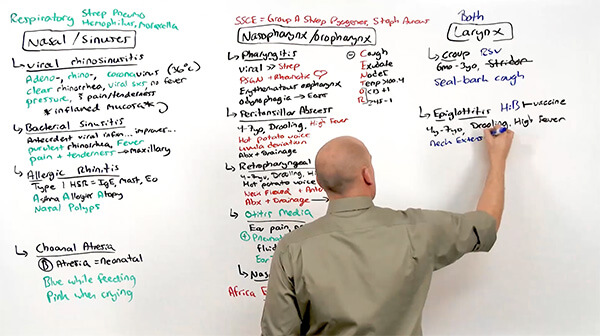 Respiratory Strep Pneumo
Hemophilus, Moraxella
Nasal/Sinuses
↳ viral rhinosinusitis
Adeno-, rhino-, coronavirus (36°C)
clear rhinorrhea, viral sxs no fever
pressure, 3 pain/tenderness
* inflamed mucosa *
↳ Bacterial Sinusitis
Antecedent viral infxn... improver...
purulent rhinorrhea, Fever
pain + tenderness → Maxillary
↳ Allergic Rhinitis
Type 1 HSR = IgE, Mast, Eo
Asthma Allergy Atopy
Nasal Polyps
↳ Choanal Atresia
B Atresia = Neonatal
Blue while feeding
Pink when crying
SSCE = Group A Strep Pyogenes, Staph Aureus
Nasopharynx/oropharynx
↳ Pharyngitis
viral >> Strep
PSGN + Rheumatic
Erythematous oropharynx
Odynophagia → Ears
- Cough
Exudate
Nodes
Temp > 100.4
OR <15 +1
>45 -1
↳ Peritonsillar Abscess
4-7yo, Drooling, High Fever
Hot potato voice
uvula deviation
Abx + Drainage
↳ Retropharyngeal
4-7yo, Drooling, Hi
Hot potato voice
Neck Flexed +
Abx + Drainage →
↳ Otitis Media
Ear pain,
Pneum
Ear
↳ Nas
Africa
Both
Larynx
↳ Croup RSV
6mo-3yo, Stridor
seal-bark cough
↳ Epiglottitis HiB ← vaccine
4-7yo, Drooling, High Fever
Neck Extens